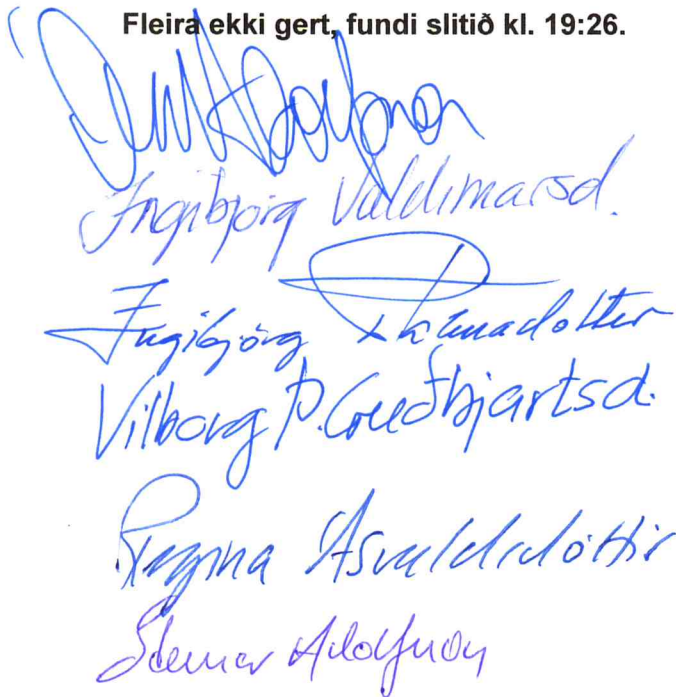 Fleira ekki gert, fundi slitið kl. 19:26.
Ingibjörg Valdimarsd.
Ingibjörg
Vilborg Þ. Guðbjartsd.
Regína Ásvaldsdóttir
Adolfsson